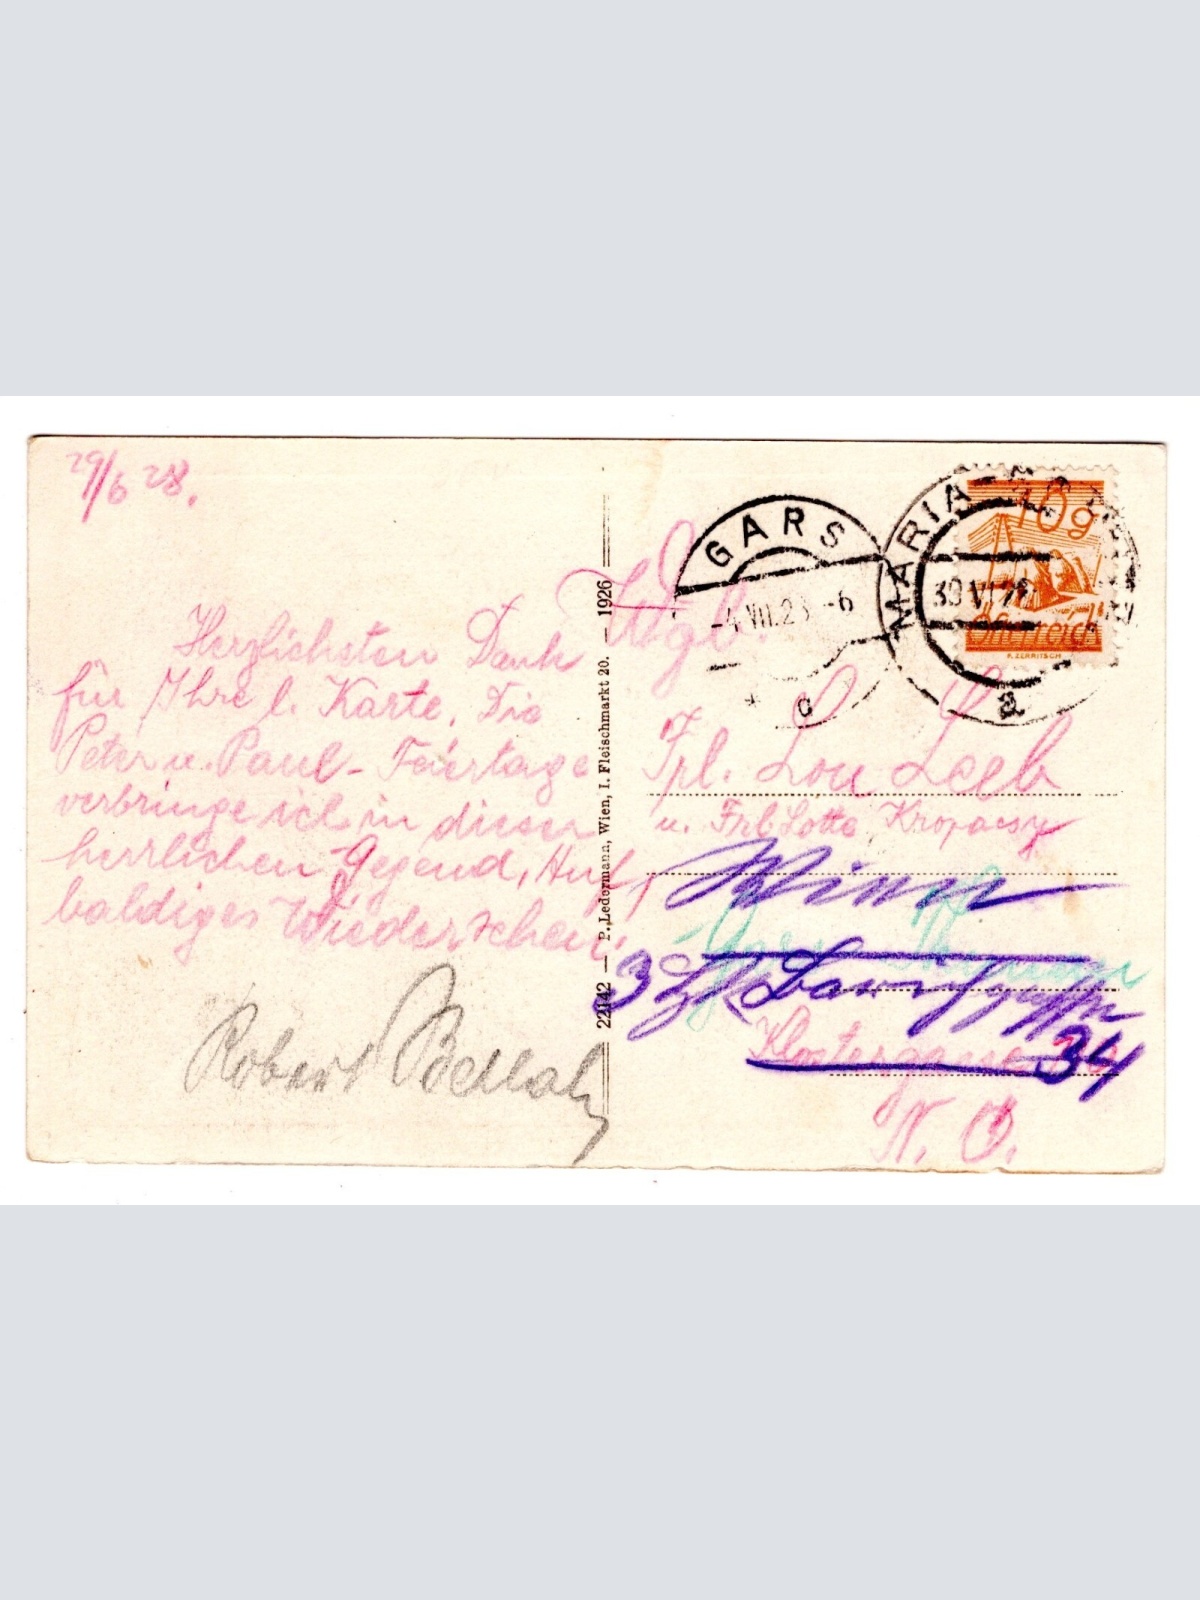 29/6 28.
Herzlichsten Dank
für Ihre l. Karte. Die
Peter u. Paul-Feiertage
verbringe ich in dieser
herrlichen Gegend, Auf
baldiges Wiedersehen.
Robert
22142 — P. Ledermann, Wien, I. Fleischmarkt 20. — 1926
GARS
-4.VII.28 -6
* c
MARIA
30.VI.28
a
10g
Österreich
Wgb.
Frl. Lou Leeb
u. Frl. Lotte Kropacsy
Wien
3
Klostergasse
34
N. Ö.